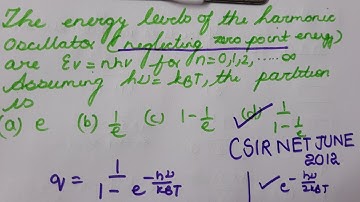 The energy levels of the harmonic
oscillator (neglecting zero point energy)
are Ev = nhν for n=0,1,2,.....∞
Assuming hν = kBT, the partition
is
(a) e (b) 1/e (c) 1-1/e (d) 1/(1-1/e)
CSIR NET JUNE
2012
q = 1/(1-e^(-hν/kBT)) e^(-hν/2kBT)